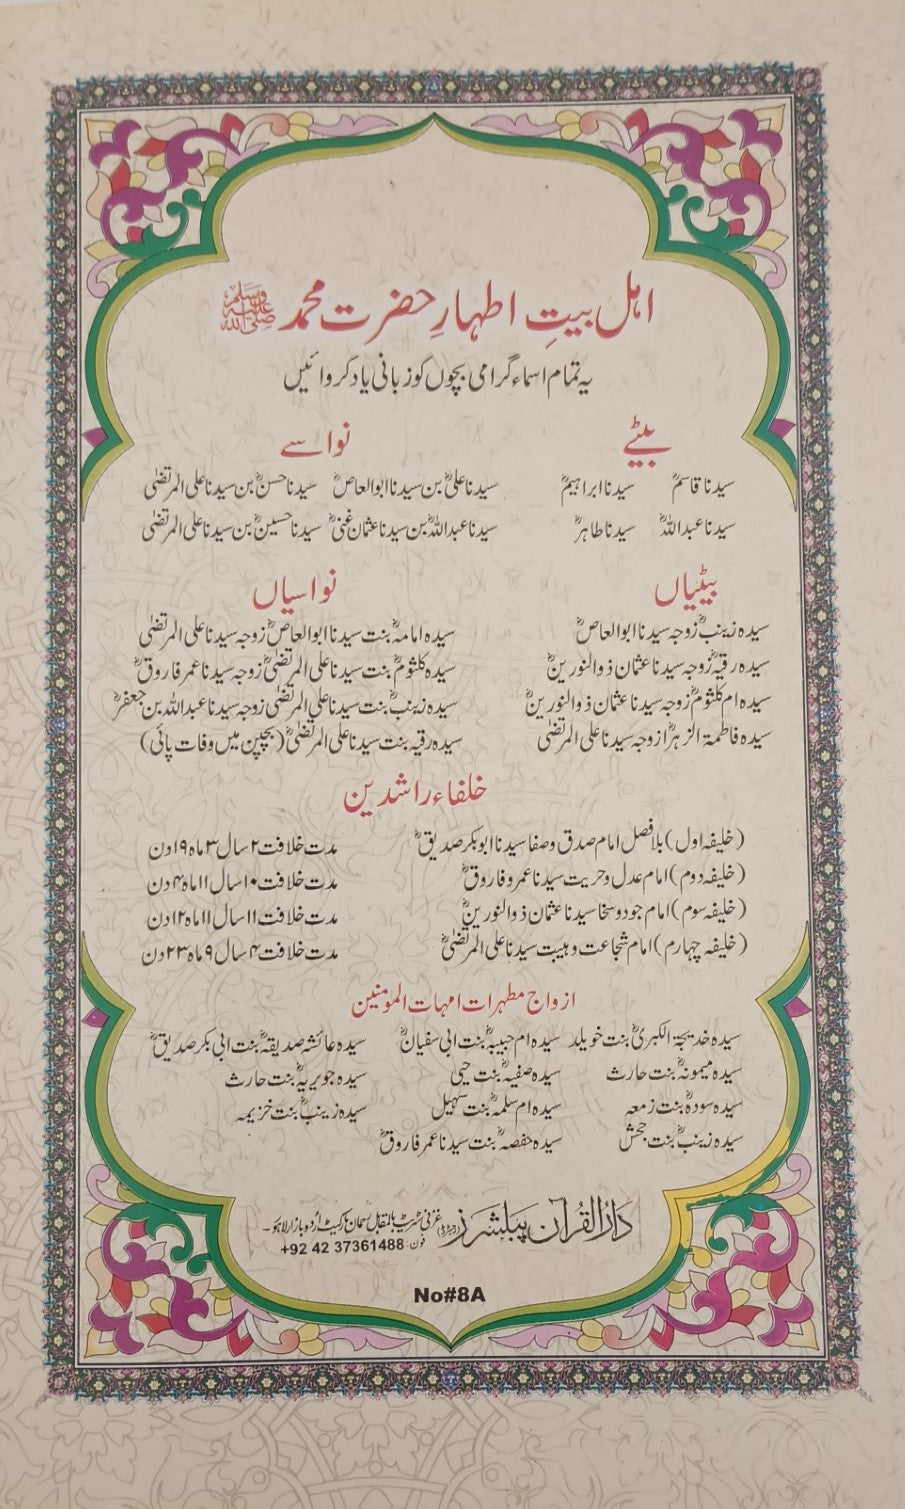 اهل بیتِ اطہارِ حضرت محمد ﷺ
یہ تمام اسماء گرامی بچوں کو زبانی یاد کروائیں
بیٹے
نواسے
سیدنا قاسمؓ سیدنا ابراہیمؓ
سیدنا علیؓ بن سیدنا ابوالعاصؓ سیدنا حسنؓ بن سیدنا علی المرتضیٰ
سیدنا عبداللہؓ سیدنا طاہرؓ
سیدنا عبداللہؓ بن سیدنا عثمان غنیؓ سیدنا حسینؓ بن سیدنا علی المرتضیٰ
بیٹیاں
نواسیاں
سیدہ زینبؓ زوجہ سیدنا ابوالعاصؓ
سیدہ امامہؓ بنت سیدنا ابوالعاصؓ زوجہ سیدنا علی المرتضیٰ
سیدہ رقیہؓ زوجہ سیدنا عثمان ذوالنورینؓ
سیدہ کلثومؓ بنت سیدنا علی المرتضیٰؓ زوجہ سیدنا عمر فاروقؓ
سیدہ ام کلثومؓ زوجہ سیدنا عثمان ذوالنورینؓ
سیدہ زینبؓ بنت سیدنا علی المرتضیٰ زوجہ سیدنا عبداللہ بن جعفرؓ
سیدہ فاطمۃ الزہراؓ زوجہ سیدنا علی المرتضیٰ
سیدہ رقیہ بنت سیدنا علی المرتضیٰؓ (بچپن میں وفات پائی)
خلفاء راشدین
(خلیفہ اول) بلافصل امام صدق و صفا سیدنا ابوبکر صدیقؓ مدت خلافت ۲ سال ۳ ماہ ۱۹ دن
(خلیفہ دوم) امام عدل و حریت سیدنا عمر و فاروقؓ مدت خلافت ۱۰ سال ۱۱ ماہ ۴ دن
(خلیفہ سوم) امام جود و سخا سیدنا عثمان ذوالنورینؓ مدت خلافت ۱۱ سال ۱۱ ماہ ۱۲ دن
(خلیفہ چہارم) امام شجاعت و ہیبت سیدنا علی المرتضیٰؓ مدت خلافت ۴ سال ۹ ماہ ۲۳ دن
ازواج مطہرات امہات المومنین
سیدہ خدیجۃ الکبریٰؓ بنت خویلد سیدہ ام حبیبہؓ بنت ابی سفیانؓ سیدہ عائشہ صدیقہؓ بنت ابی بکر صدیقؓ
سیدہ میمونہؓ بنت حارث سیدہ صفیہؓ بنت حیی سیدہ جویریہؓ بنت حارث
سیدہ سودہؓ بنت زمعہ سیدہ ام سلمہؓ بنت سہیل سیدہ زینبؓ بنت خزیمہ
سیدہ زینبؓ بنت جحش سیدہ حفصہؓ بنت سیدنا عمر فاروقؓ
دارُالقرآن پبلشرز (رجسٹرڈ) غزنی سٹریٹ بالمقابل رحمان مارکیٹ اُردو بازار لاہور۔
فون: +92 42 37361488
No#8A